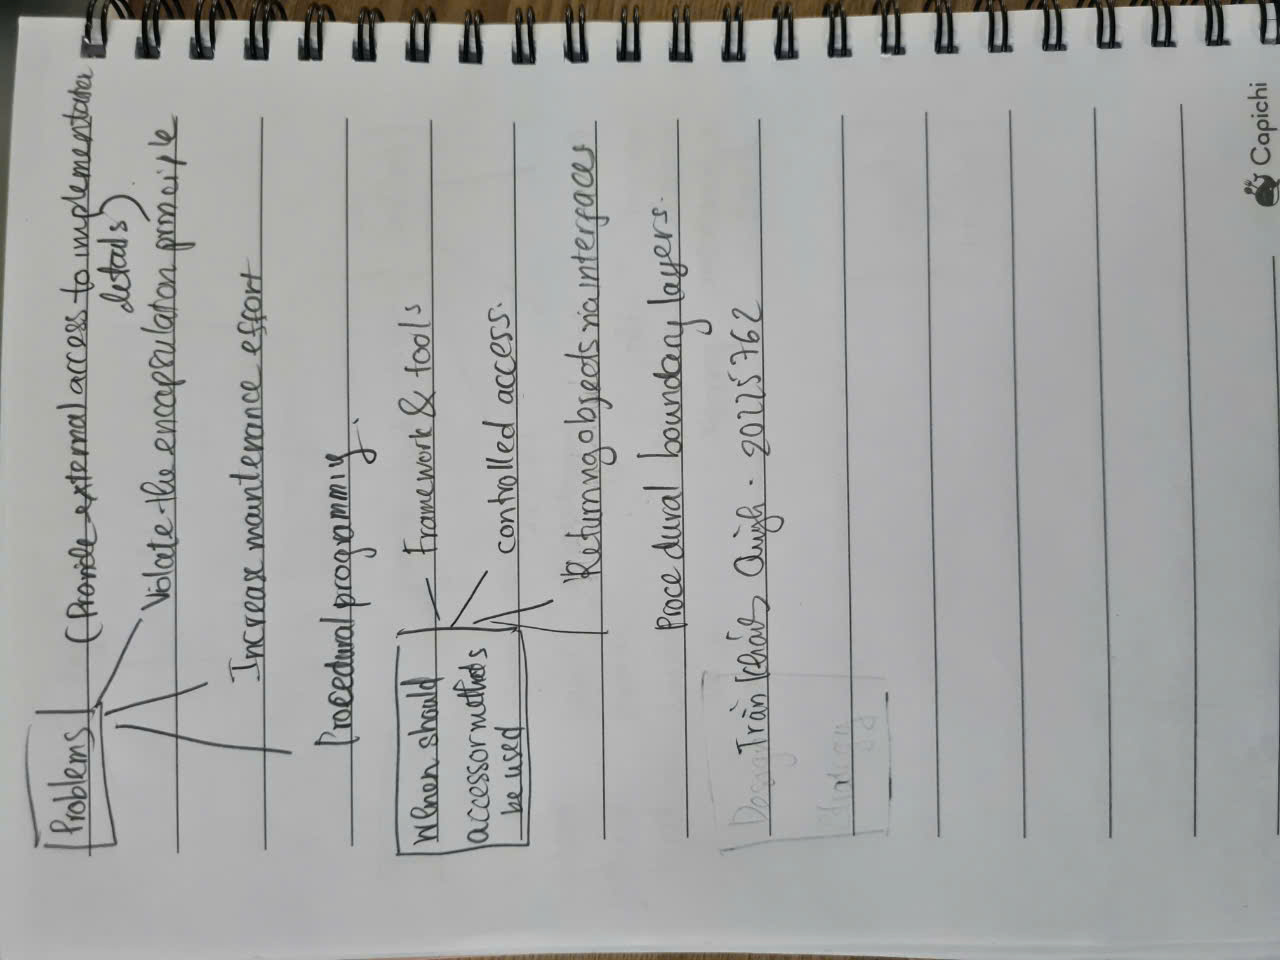 Problems
(Provide external access to implementation
details)
Violate the encapsulation principle
Increase maintenance effort
Procedural programming.
When should
accessor methods
be used
Framework & tools
controlled access.
Returning objects via interfaces
Procedural boundary layers.
Trần Khánh Quỳnh - 20225762
Capichi